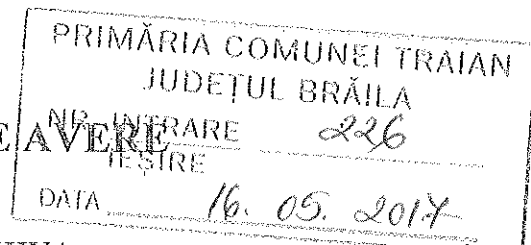 PRIMĂRIA COMUNEI TRAIAN
JUDEȚUL BRĂILA
NR. INTRARE 226
E AVERE
IEȘIRE
DATA 16. 05. 2017